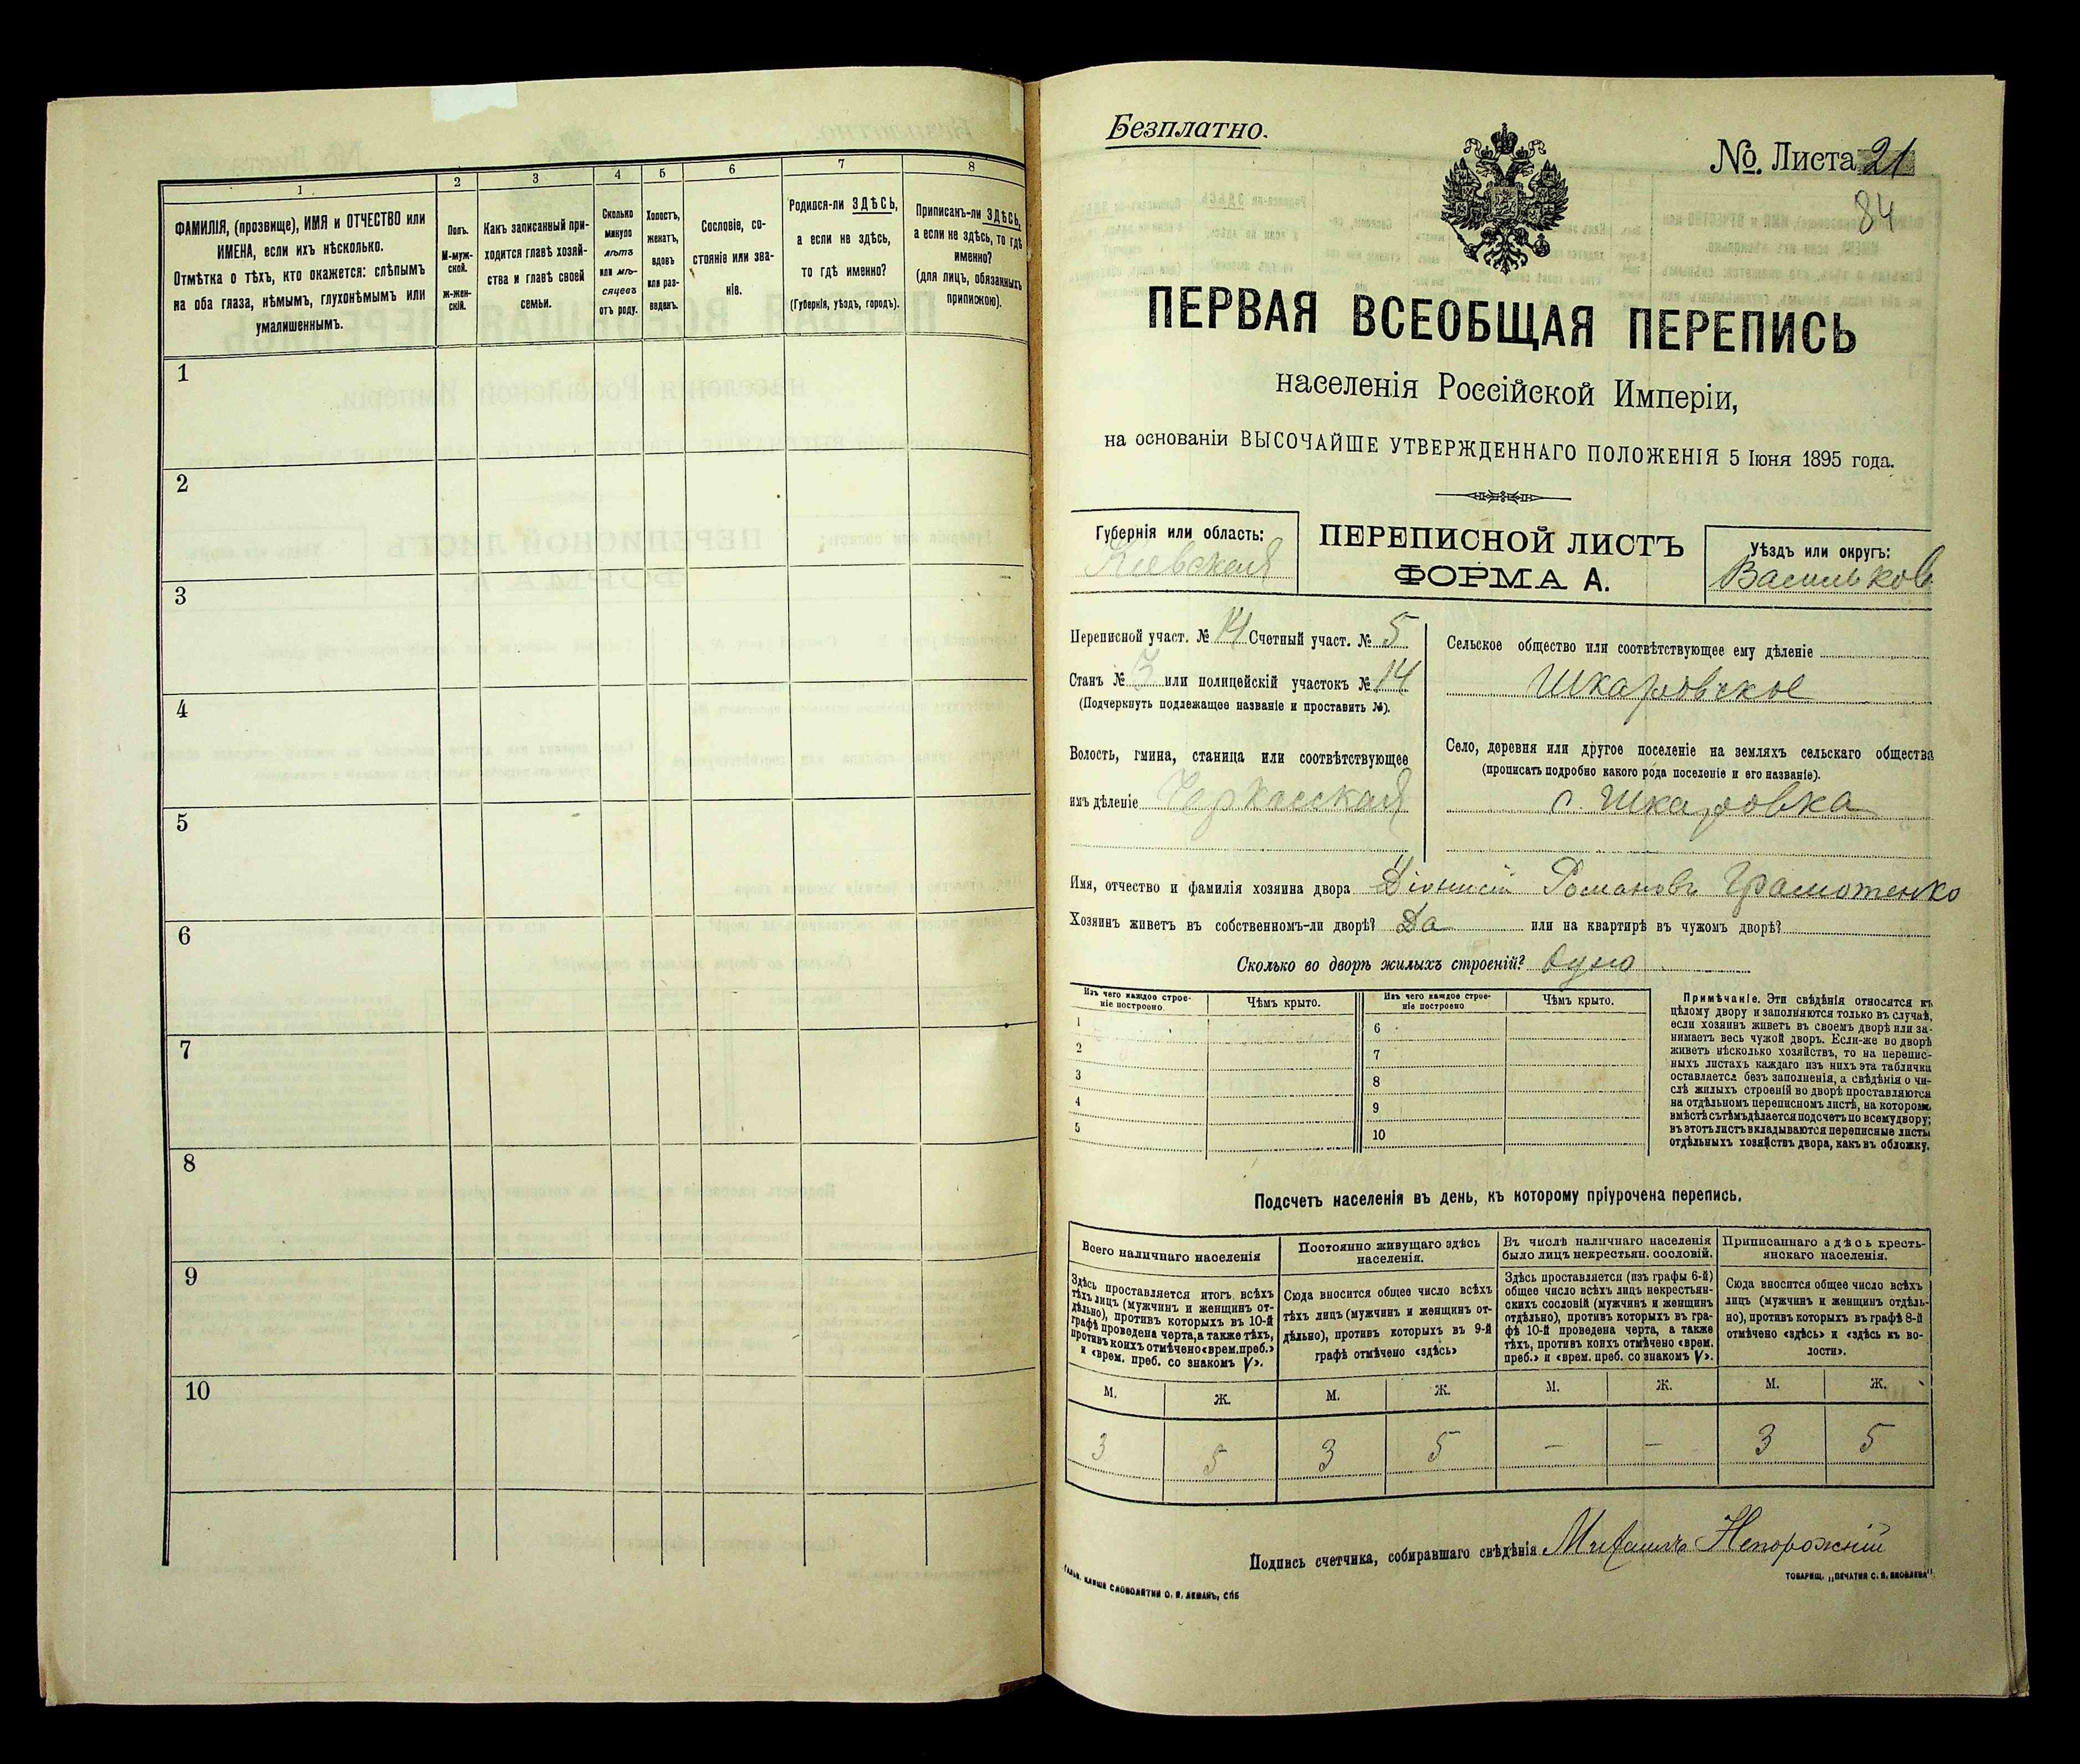 1
2
3
4
5
6
7
8
ФАМИЛІЯ, (прозвище), ИМЯ и ОТЧЕСТВО или
ИМЕНА, если ихъ нѣсколько.
Отмѣтка о тѣхъ, кто окажется: слѣпымъ
на оба глаза, нѣмымъ, глухонѣмымъ или
умалишеннымъ.
Полъ.
М-муж-
ской.
ж-жен-
скій.
Какъ записанный при-
ходится главѣ хозяй-
ства и главѣ своей
семьи.
Сколько
минуло
лѣтъ
или мѣ-
сяцевъ
отъ роду.
Холостъ,
женатъ,
вдовъ
или раз-
веденъ.
Сословіе, со-
стояніе или зва-
ніе.
Родился-ли ЗДѢСЬ,
а если не здѣсь,
то гдѣ именно?
(Губернія, уѣздъ, городъ).
Приписанъ-ли ЗДѢСЬ,
а если не здѣсь, то гдѣ
именно?
(для лицъ, обязанныхъ
припискою).
1
2
3
4
5
6
7
8
9
10
Безплатно.
№ Листа 21
84
ПЕРВАЯ ВСЕОБЩАЯ ПЕРЕПИСЬ
населенія Россійской Имперіи,
на основаніи ВЫСОЧАЙШЕ УТВЕРЖДЕННАГО ПОЛОЖЕНІЯ 5 Іюня 1895 года.
Губернія или область:
Кіевская
ПЕРЕПИСНОЙ ЛИСТЪ
ФОРМА А.
Уѣздъ или округъ:
Васильков
Переписной участ. № 14 Счетный участ. № 5
Станъ № 3 или полицейскій участокъ № 14
(Подчеркнуть подлежащее названіе и проставить №).
Волость, гмина, станица или соотвѣтствующее
имъ дѣленіе Черкасская
Сельское общество или соотвѣтствующее ему дѣленіе
Шкаровское
Село, деревня или другое поселеніе на земляхъ сельскаго общества
(прописать подробно какого рода поселеніе и его названіе).
с. Шкаровка
Имя, отчество и фамилія хозяина двора Діонисій Романовъ Грамотенко
Хозяинъ живетъ въ собственномъ-ли дворѣ? Да или на квартирѣ въ чужомъ дворѣ?
Сколько во дворѣ жилыхъ строеній? одно
Изъ чего каждое строе-
ніе построено
Чѣмъ крыто.
Изъ чего каждое строе-
ніе построено
Чѣмъ крыто.
1
2
3
4
5
6
7
8
9
10
Примѣчаніе. Эти свѣдѣнія относятся къ
цѣлому двору и заполняются только въ случаѣ,
если хозяинъ живетъ въ своемъ дворѣ или за-
нимаетъ весь чужой дворъ. Если-же во дворѣ
живетъ нѣсколько хозяйствъ, то на перепис-
ныхъ листахъ каждаго изъ нихъ эта табличка
оставляется безъ заполненія, а свѣдѣнія о чи-
слѣ жилыхъ строеній во дворѣ проставляются
на отдѣльномъ переписномъ листѣ, на которомъ
вмѣстѣ съ тѣмъ дѣлается подсчетъ по всему двору;
въ этотъ листъ вкладываются переписные листы
отдѣльныхъ хозяйствъ двора, какъ въ обложку.
Подсчетъ населенія въ день, къ которому пріурочена перепись.
Всего наличнаго населенія
Здѣсь проставляется итогъ всѣхъ
тѣхъ лицъ (мужчинъ и женщинъ от-
дѣльно), противъ которыхъ въ 10-й
графѣ проведена черта, а также тѣхъ,
противъ коихъ отмѣчено «врем. преб.»
и «врем. преб. со знакомъ V».
Постоянно живущаго здѣсь
населенія.
Сюда вносится общее число всѣхъ
тѣхъ лицъ (мужчинъ и женщинъ от-
дѣльно), противъ которыхъ въ 9-й
графѣ отмѣчено «здѣсь»
Въ числѣ наличнаго населенія
было лицъ некрестьян. сословій.
Здѣсь проставляется (изъ графы 6-й)
общее число всѣхъ лицъ некрестьян-
скихъ сословій (мужчинъ и женщинъ
отдѣльно), противъ которыхъ въ гра-
фѣ 10-й проведена черта, а также
тѣхъ, противъ коихъ отмѣчено «врем.
преб.» и «врем. преб. со знакомъ V».
Приписаннаго здѣсь кресть-
янскаго населенія.
Сюда вносится общее число всѣхъ
лицъ (мужчинъ и женщинъ отдѣль-
но), противъ которыхъ въ графѣ 8-й
отмѣчено «здѣсь» и «здѣсь къ во-
лости».
М. Ж. М. Ж. М. Ж. М. Ж.
3 5 3 5 — — 3 5
Подпись счетчика, собиравшаго свѣдѣнія Михаилъ Непорожній
ГАЛЬВ. КЛИШЕ СЛОВОЛИТНИ О. И. ЛЕМАНЪ, СПБ
ТОВАРИЩ. „ПЕЧАТНЯ С. П. ЯКОВЛЕВА“.